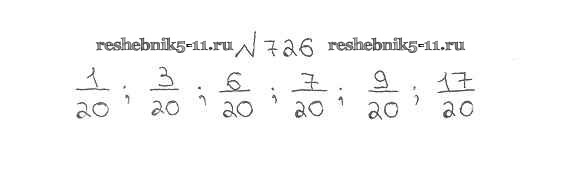 reshebnik5-11.ru №726 reshebnik5-11.ru
1/20 ; 3/20 ; 6/20 ; 7/20 ; 9/20 ; 17/20